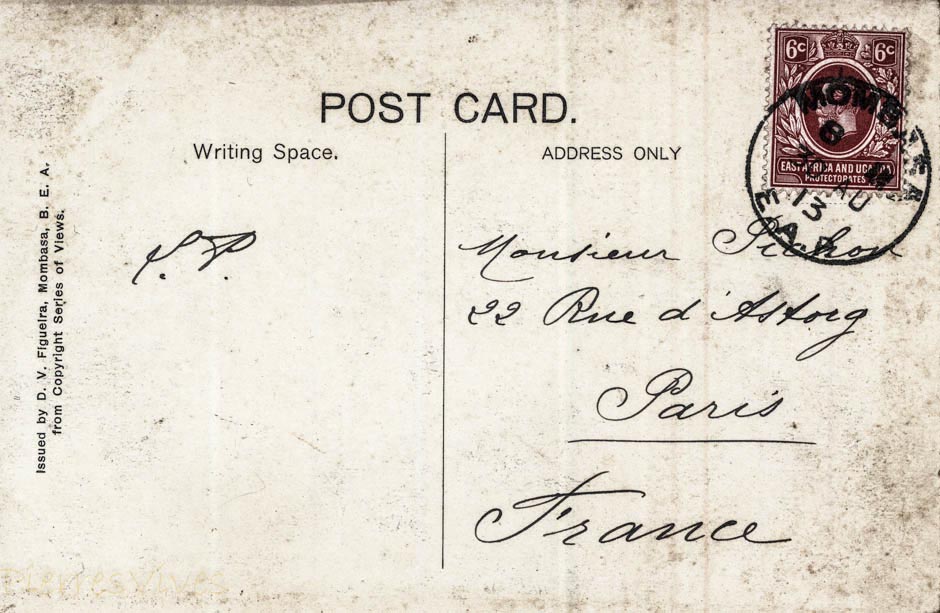 POST CARD.
Writing Space.
ADDRESS ONLY
6c 6c
EAST AFRICA AND UGANDA
PROTECTORATES
MOMBASA
8
AU
13
Issued by D. V. Figueira, Mombasa, B. E. A.
from Copyright Series of Views.
Monsieur Pichon
22 Rue d'Astorg
Paris
France
PierresVives